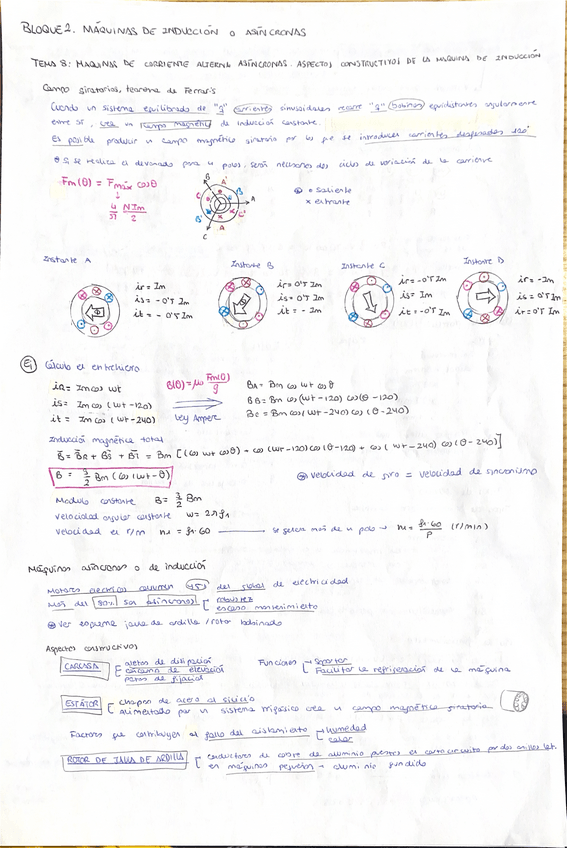 BLOQUE 2. MÁQUINAS DE INDUCCIÓN O ASÍNCRONAS
TEMA 8: MAQUINAS DE CORRIENTE ALTERNA ASÍNCRONAS. ASPECTOS CONSTRUCTIVOS DE LA MAQUINA DE INDUCCIÓN
Campo giratorios, teorema de Ferraris
Cuando un sistema equilibrado de "q" corrientes sinusoidales recorre "q" bobinas equidistantes angularmente
entre sí, crea un campo magnético de inducción constante.
Es posible producir un campo magnético giratorio por los que se introducen corrientes desfasadas 120°
si se realiza el devanado para 4 polos, serán necesarios dos ciclos de variación de la corriente
Fm(θ) = Fmáx cosθ
4/π NIm/2
A B C A' B' C'
o saliente
x entrante
Instante A
ir = Im
is = -0'5 Im
it = -0'5 Im
Instante B
ir = 0'5 Im
is = 0'5 Im
it = -Im
Instante C
ir = -0'5 Im
is = Im
it = -0'5 Im
Instante D
ir = -Im
is = 0'5 Im
ir = 0'5 Im
Ej Cálculo el entrehierro
iR = Im cos wt
is = Im cos (wt-120)
it = Im cos (wt-240)
B(θ) = μ₀ Fm(θ)/g
Ley Ampere
BA = Bm cos wt cos θ
BB = Bm cos (wt-120) cos(θ-120)
BC = Bm cos (wt-240) cos (θ-240)
Inducción magnética total
B = BR + BS + BT = Bm [(cos wt cosθ) + cos (wt-120) cos (θ-120) + cos (wt-240) cos (θ-240)]
B = 3/2 Bm (cos (wt-θ)
velocidad de giro = velocidad de sincronismo
Modulo constante B = 3/2 Bm
Velocidad angular constante w = 2πf1
Velocidad el r/m n1 = f1·60 se genera más de un polo → n1 = f1·60/P (r/min)
Máquinas asíncronas o de inducción
Motores electricos consumen del global de electricidad
Mas del 80% son asíncronos [ robustez
escaso mantenimiento
Ver esquema jaula de ardilla / rotor bobinado
Aspectos constructivos
CARCASA [ aletas de disipación
cáncamo de elevación
patas de fijación
Funciones [ Soportar
Facilitar la refrigeración de la máquina
ESTÁTOR [ chapas de acero al silicio
alimentado por un sistema trifásico crea un campo magnético giratorio
Factores que contribuyen al fallo del aislamiento [ humedad
calor
ROTOR DE JAULA DE ARDILLA [ conductores de cobre de aluminio puestos en cortocircuito por dos anillos lat.
en máquinas pequeñas → aluminio fundido